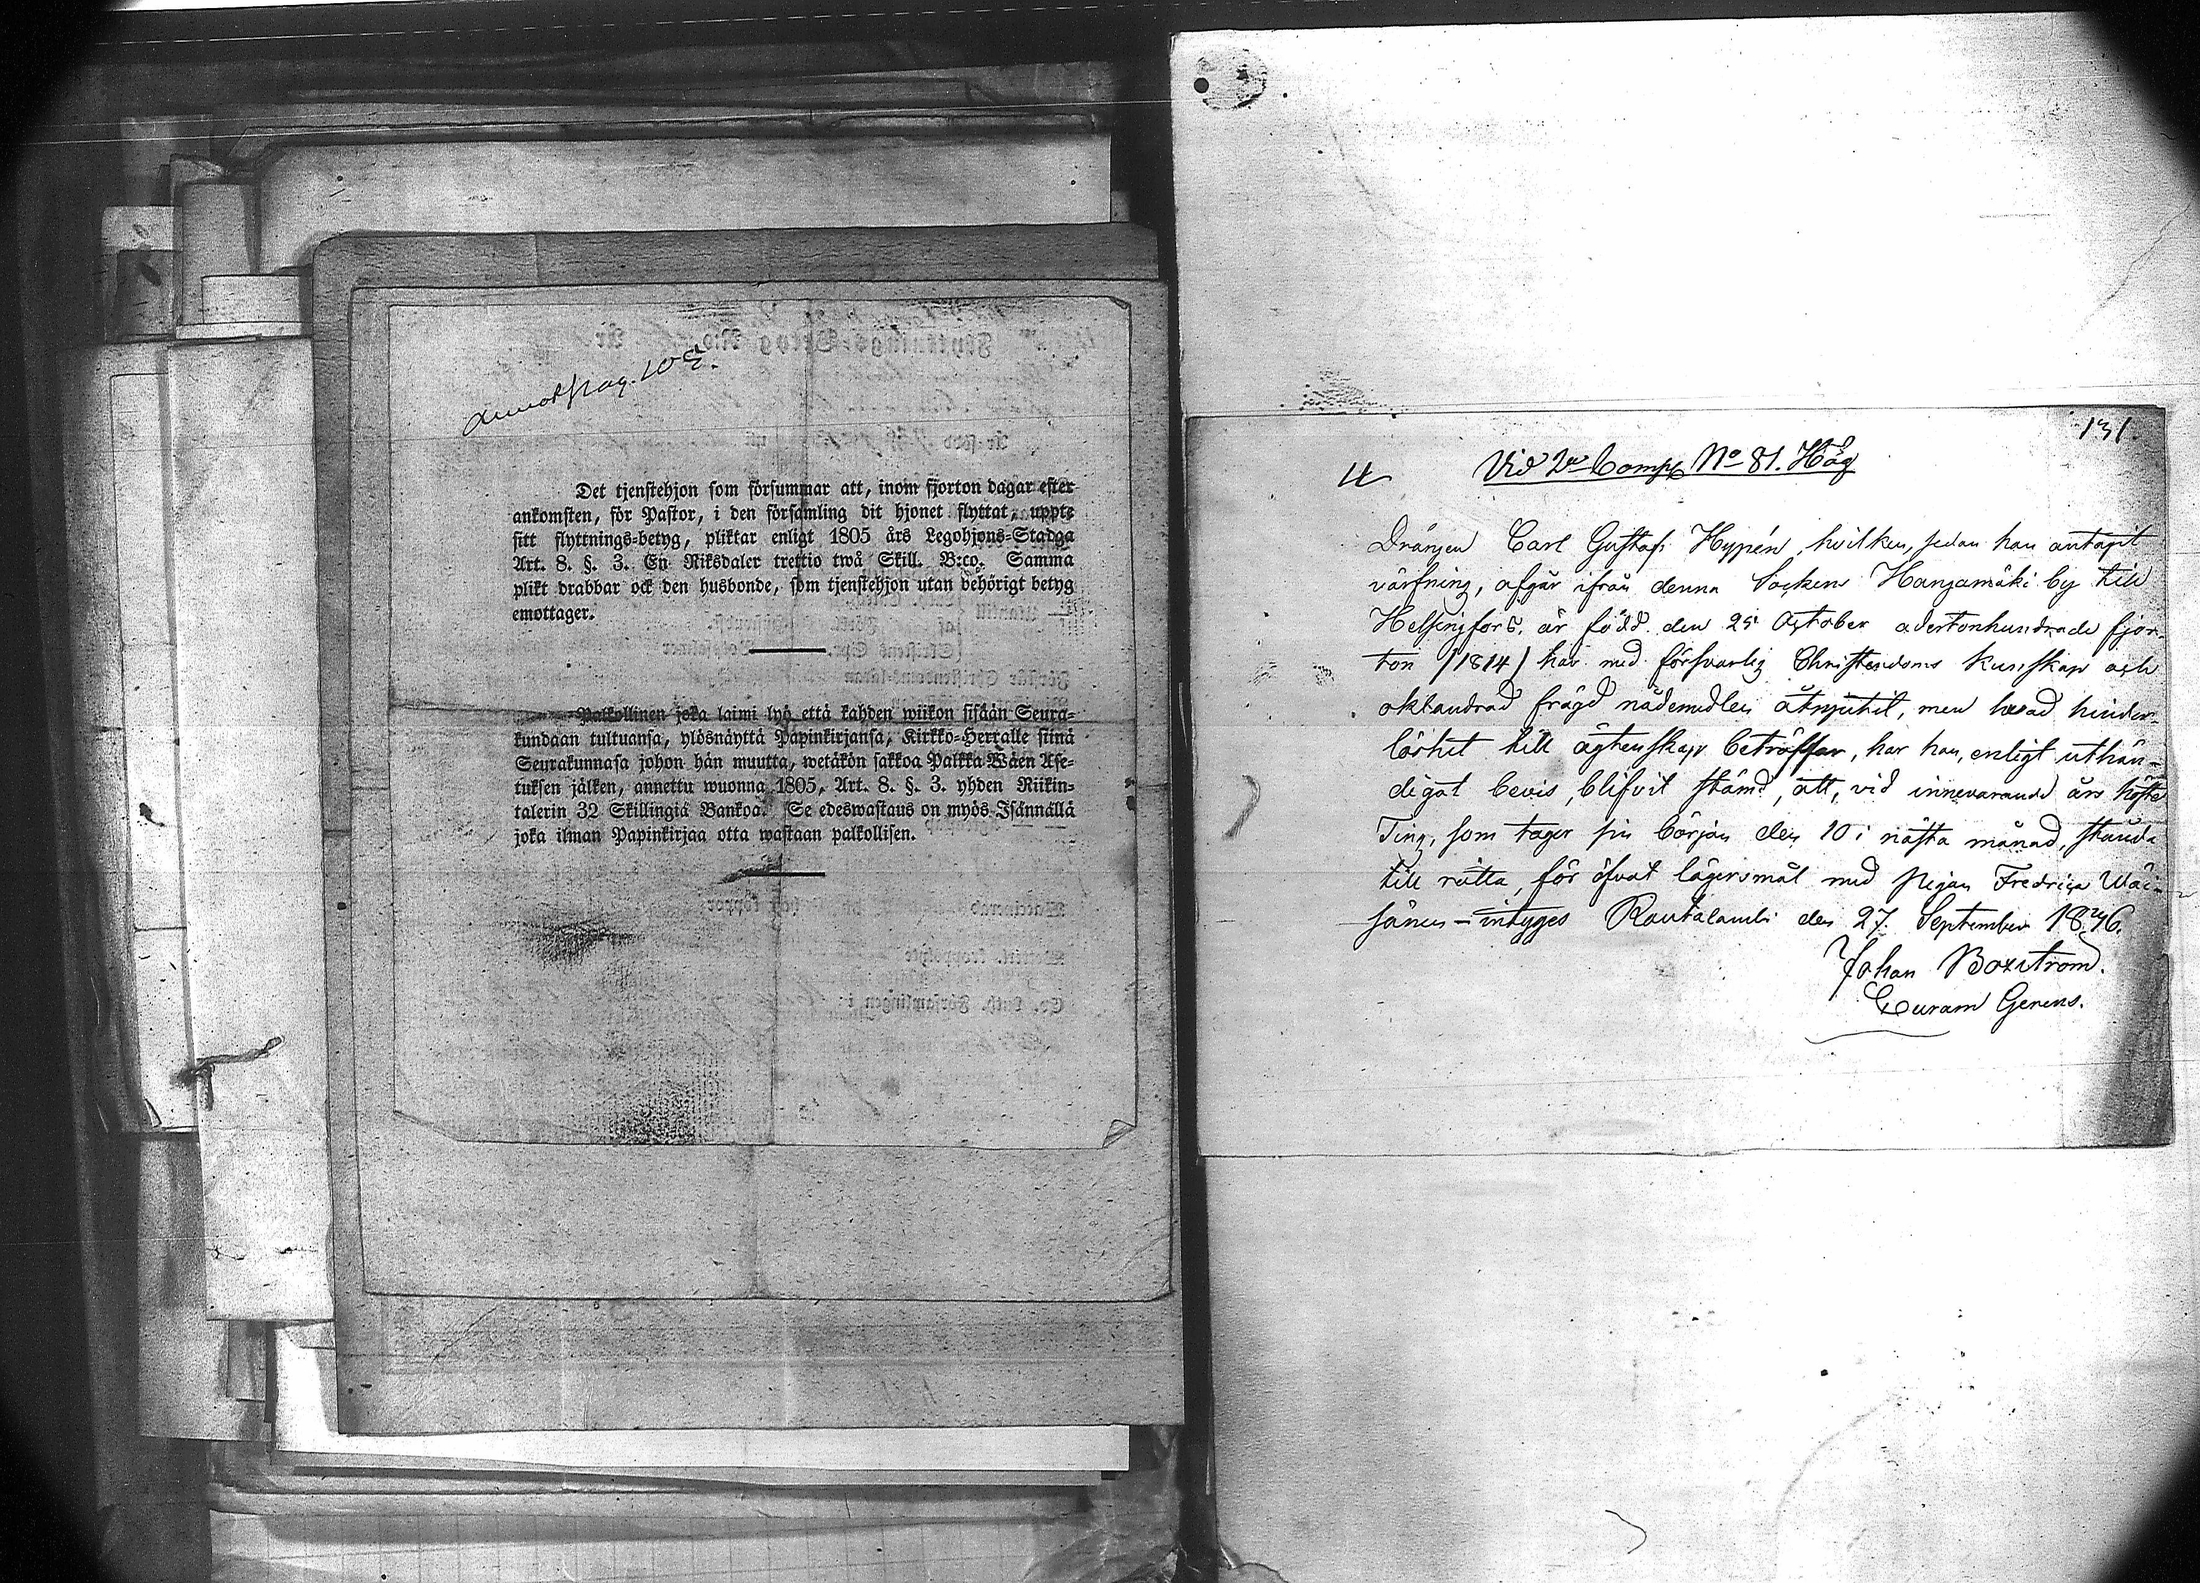 annot pag. 102.
Det tjenstehjon som försummar att, inom fjorton dagar efter
ankomsten, för Pastor, i den församling dit hjonet flyttat, uppte
sitt flyttnings-betyg, pliktar enligt 1805 års Legohjons-Stadga
Art. 8. §. 3. En Riksdaler trettio twå Skill. B:co. Samma
plikt drabbar ock den husbonde, som tjenstehjon utan behörigt betyg
emottager.
Palkollinen joka laimi lyö että kahden wiikon sisään Seura-
kundaan tultuansa, ylösnäyttä Papinkirjansa, Kirkko-Herralle siinä
Seurakunnasa johon hän muutta, wetäkön sakkoa Palkka Wäen Ase-
tuksen jälken, annettu wuonna 1805, Art. 8. §. 3. yhden Riikin-
talerin 32 Skillingiä Bankoa. Se edeswastaus on myös Isännällä
joka ilman Papinkirjaa otta wastaan palkollisen.
131.
Vid 2de Comp No 81. Hög
Drängen Carl Gustaf Hypén, hvilken, sedan han antagit
värfning, afgår ifrån denna Socken Hangamäki by till
Helsingfors, är född den 25 October adertonhundrade fjor-
ton /1814/ har med försvarlig Christendoms kunskap och
oklandrad frägd nådemedlen åtnjutit, men hvad hinder-
löshet till ägtenskap beträffar, har han, enligt uthän-
digat bevis, blifvit stämd, att, vid innevarande års höste
Ting, som tager sin början den 10 i nästa månad, stånda
till rätta, för öfvat lägersmål med pigan Fredrica Wäi-
sänen – intyges Rautalambi den 27. September 1846.
Johan Boxström.
Curam Gerens.